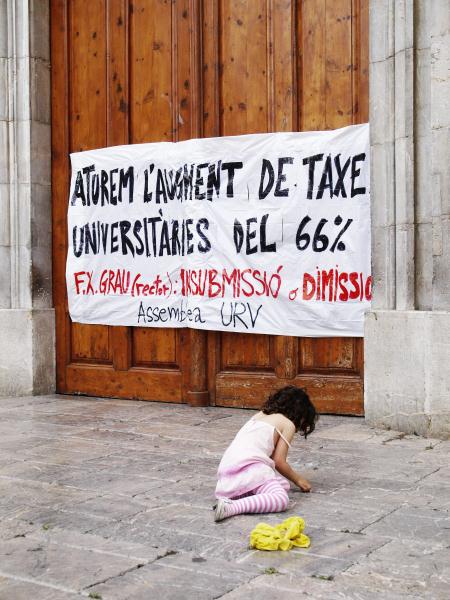 ATUREM L'AUGMENT DE TAXE
UNIVERSITÀRIES DEL 66%
F.X. GRAU (rector): INSUBMISSIÓ o DIMISSIO
Assemblea URV